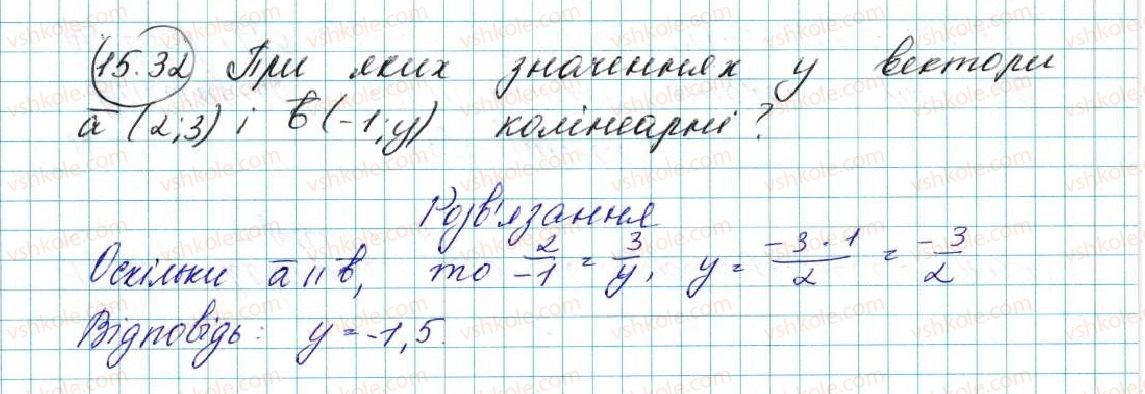 15.32 При яких значеннях y вектори
a̅ (2;3) і b̅ (-1;y) колінеарні?
Розв'язання
Оскільки a̅ || b̅, то 2/-1 = 3/y, y = -3·1/2 = -3/2
Відповідь: y = -1,5.